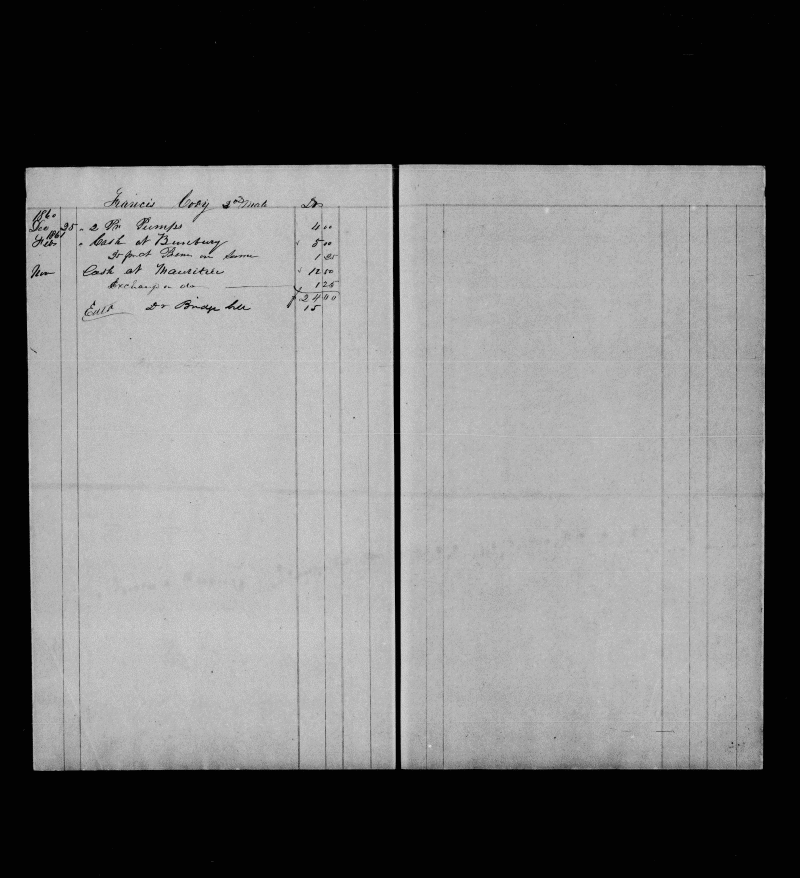 Francis Cody 2nd Mate Dr
1860
Dec 25 " 2 Pr Pumps 4 00
1861
Feb " Cash at Bunebury 5 00
25 pr ct Prem on Same 1 25
Nov Cash at Mauritius 12 50
Exchange on do 1 25
$ 24 00
Dr Bridge bill 15